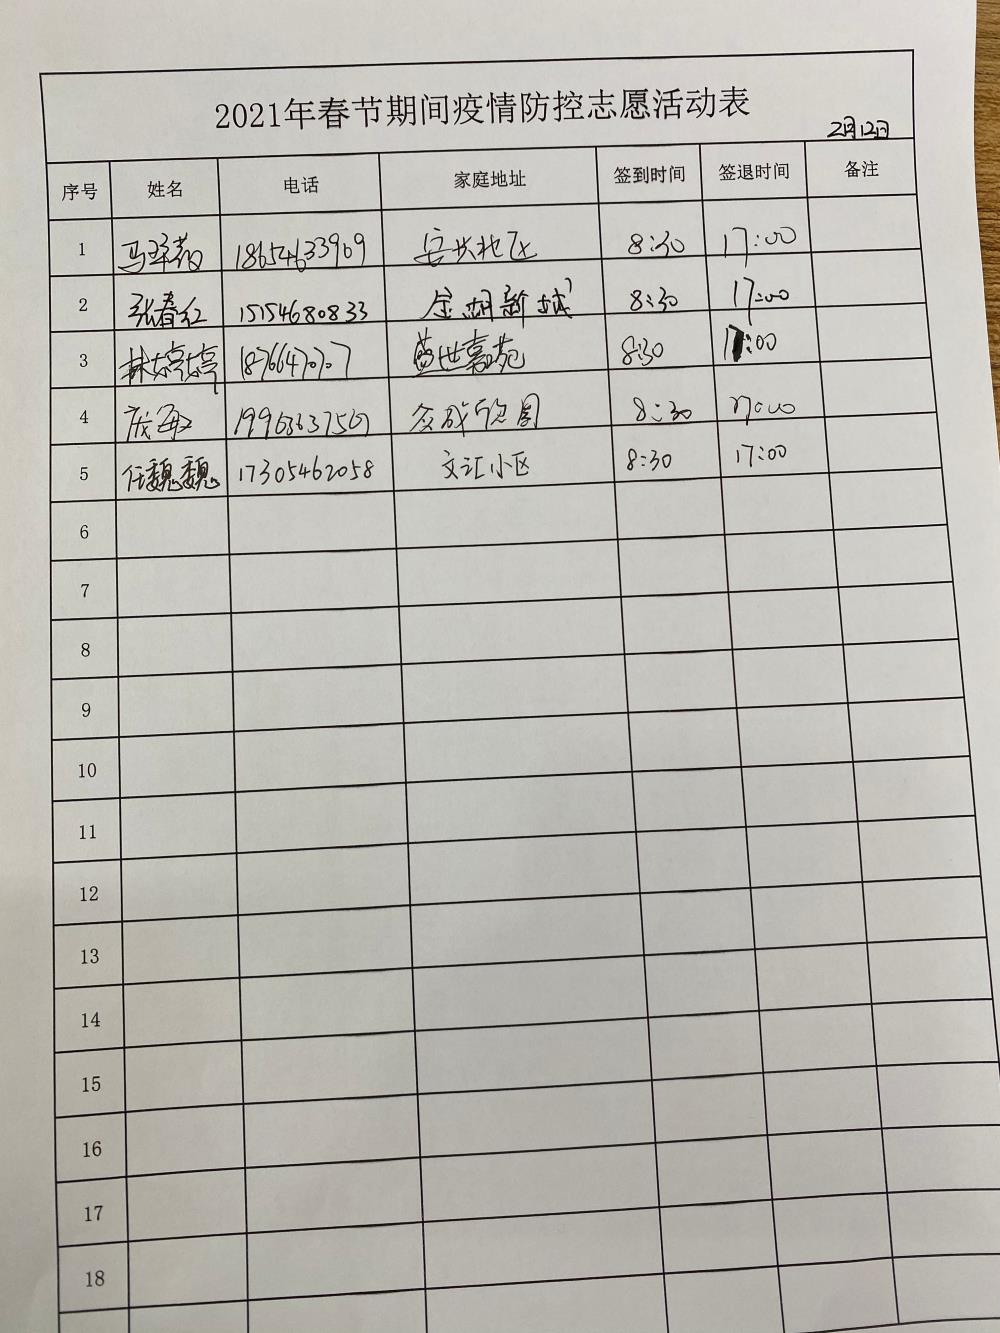 2021年春节期间疫情防控志愿活动表
2月12日
序号 姓名 电话 家庭地址 签到时间 签退时间 备注
1 18654633909 安兴北区 8:30 17:00
2 张春红 15154680833 金湖新城 8:30 17:00
3 林婷婷 盛世嘉苑 8:30 17:00
4 8:30 17:00
5 任魏魏 17305462058 文汇小区 8:30 17:00
6
7
8
9
10
11
12
13
14
15
16
17
18